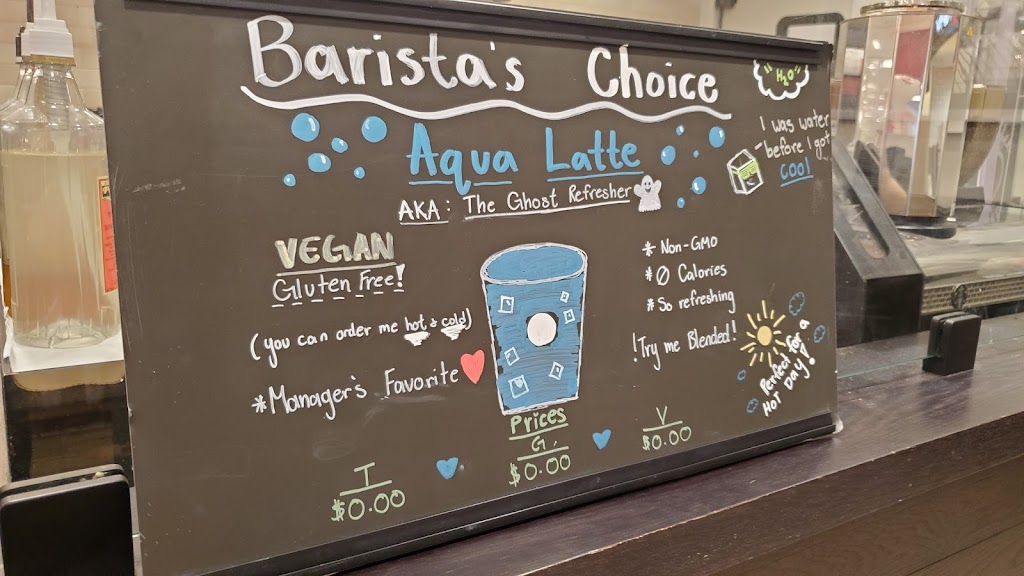 Barista's Choice
"H₂O"
Aqua Latte
I was water
before I got
COOL
AKA: The Ghost Refresher
VEGAN
Gluten Free!
(you can order me hot & cold)
*Manager's Favorite
* Non-GMO
* Ø Calories
* So refreshing
!Try me Blended!
Perfect for a
HOT Day!
Prices
T
$0.00
G
$0.00
V
$0.00